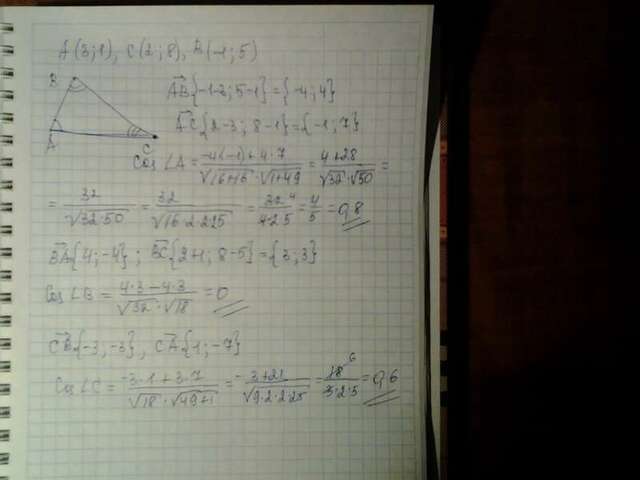 A(3;1), C(2;8), B(-1;5)
B
A
C
AB{-1-3; 5-1} = {-4; 4}
AC{2-3; 8-1} = {-1; 7}
Cos ∠A = -4(-1)+4·7 / √16+16 · √1+49 = 4+28 / √32 · √50 =
= 32 / √32·50 = 32 / √16·2·2·25 = 32 / 4·2·5 = 4/5 = 0,8
BA{4; -4}; BC{2+1; 8-5} = {3; 3}
Cos ∠B = 4·3-4·3 / √32 · √18 = 0
CB{-3; -3}, CA{1; -7}
Cos ∠C = -3·1+3·7 / √18 · √49+1 = -3+21 / √9·2·2·25 = 18 6 / 3·2·5 = 0,6